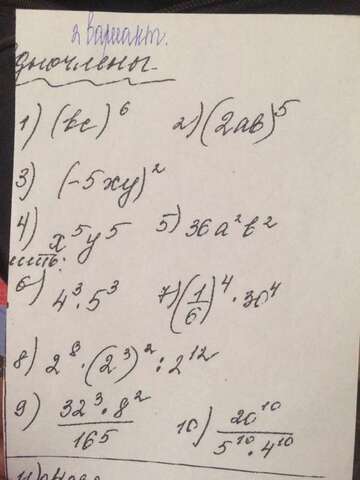 2 вариант.
дночлены
1) (bc)^6 2) (2ab)^5
3) (-5xy)^2
4) x^5y^5 5) 36a^2b^2
ить:
6) 4^3 · 5^3 7) (1/6)^4 · 30^4
8) 2^8 · (2^3)^2 : 2^12
9) 32^3 · 8^2 / 16^5 10) 20^10 / 5^10 · 4^10